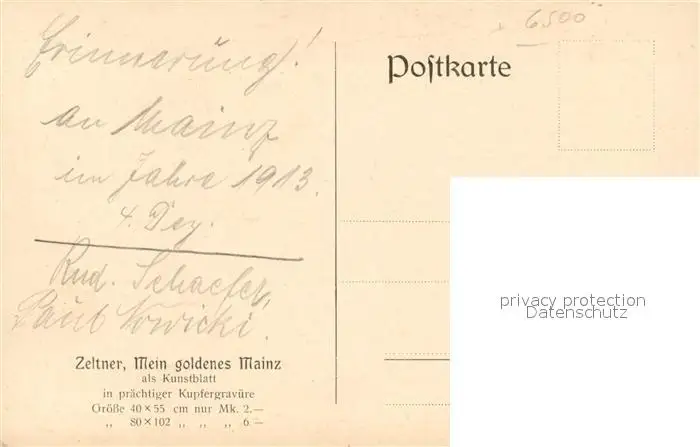 Erinnerung!
an Mainz
im Jahre 1913.
4. Dez.
Rud. Schaefer,
Paul Nowicki.
Zeltner, Mein goldenes Mainz
als Kunstblatt
in prächtiger Kupfergravüre
Größe 40 × 55 cm nur Mk. 2.—
„ 80 × 102 „ „ „ 6.—
6500
Postkarte
privacy protection
Datenschutz